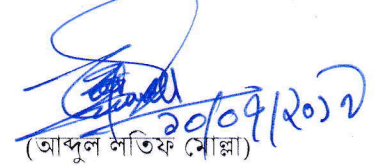 ২০/০৭/২০১৭
(আব্দুল লতিফ মোল্লা)